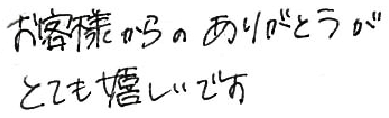 お客様からのありがとうが
とても嬉しいです